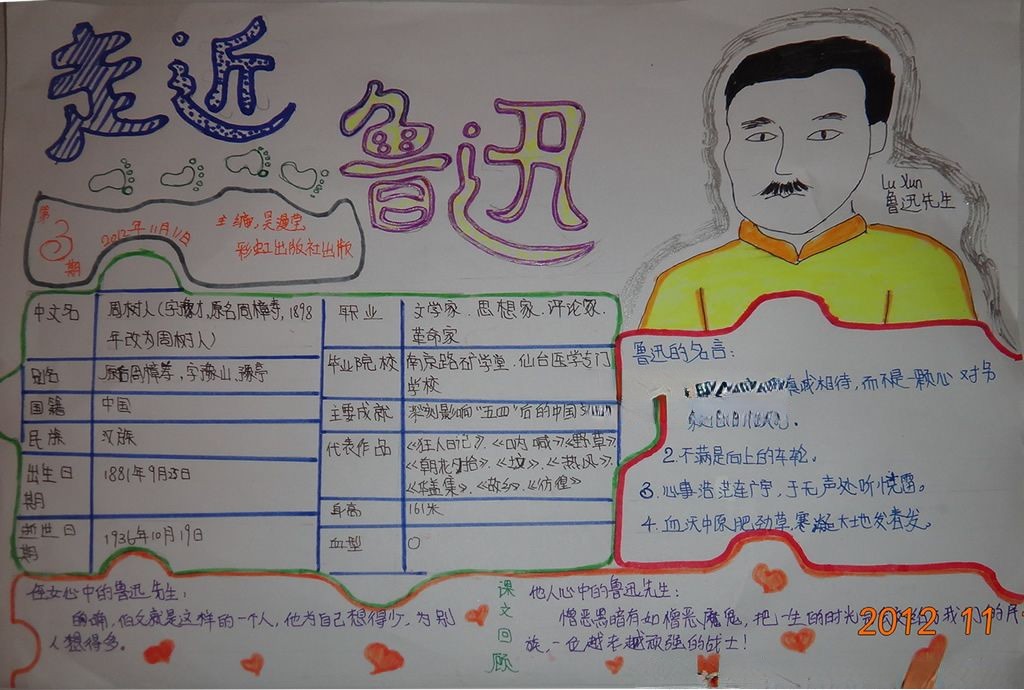 走近
鲁迅
第3期
2012年11月11日
主编:吴漫莹
彩虹出版社出版
Lu Xun
鲁迅先生
中文名
周树人(字豫才,原名周樟寿,1898
年改为周树人)
别名
原名周樟寿,字豫山、豫亭
国籍
中国
民族
汉族
出生日
期
1881年9月25日
逝世日
期
1936年10月19日
职业
文学家.思想家.评论家.
革命家
毕业院校
南京路矿学堂.仙台医学专门
学校
主要成就
深刻影响"五四"后的中国
代表作品
《狂人日记》.《呐喊》《野草》
《朝花夕拾》.《坟》.《热风》.
《华盖集》.《故乡》.《仿徨》
身高
161米
血型
O
鲁迅的名言:
诚相待,而不是一颗心对另
2.不满是向上的车轮。
3.心事浩茫连广宇,于无声处听惊雷。
4.血沃中原肥劲草,寒凝大地发春发。
侄女心中的鲁迅先生:
的确,伯父就是这样的一个人,他为自己想得少.为别
人想得多。
课文回顾
他人心中的鲁迅先生:
憎恶黑暗有如憎恶魔鬼,把一生的时光 我们的民
族,一位越老越顽强的战士!
2012 11